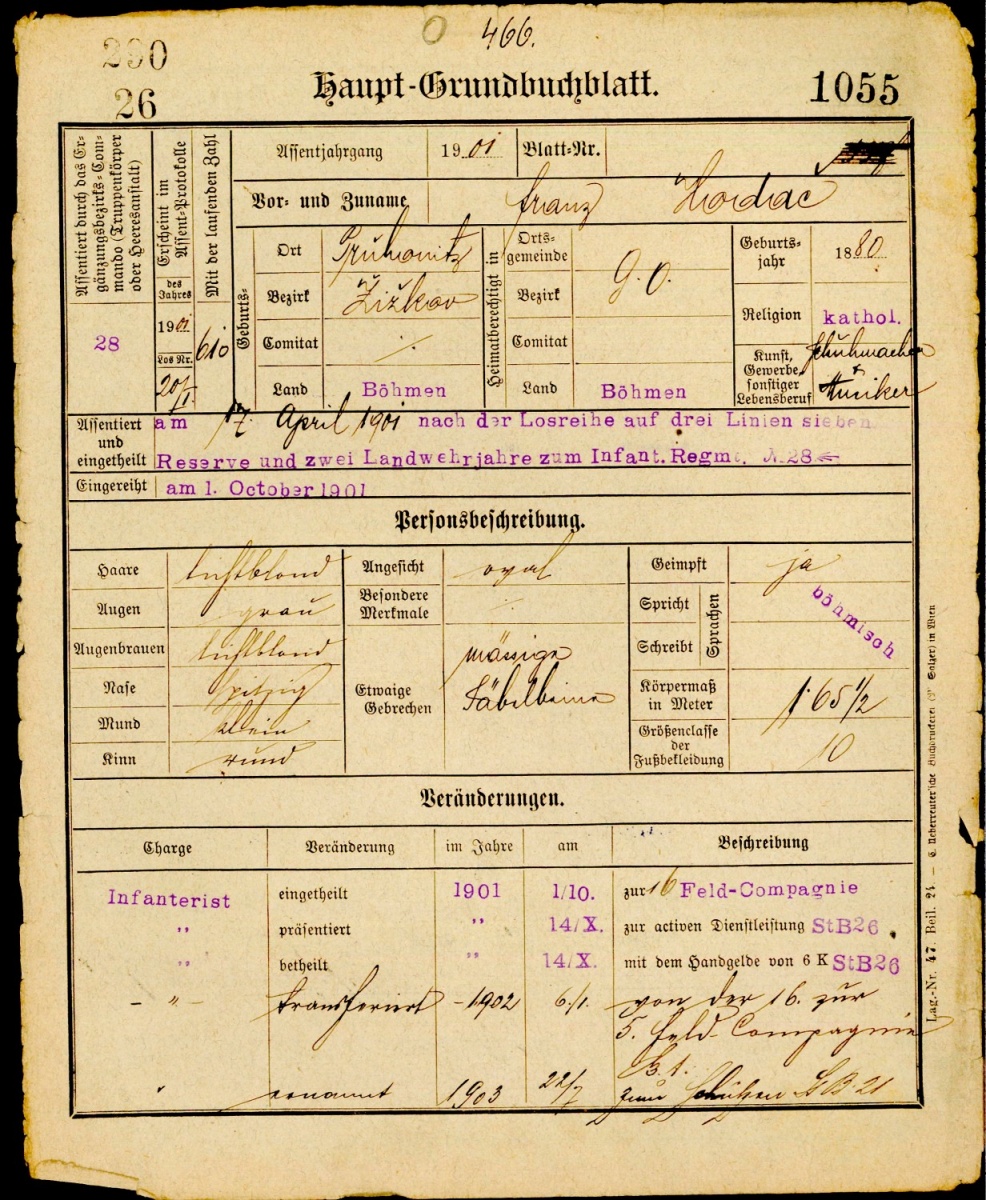 466.
290
26
Haupt-Grundbuchblatt.
1055
Assentiert durch das Er-
gänzungsbezirks-Com-
mando (Truppenkörper
oder Heeresanstalt)
28
Erscheint im
Assent-Protokolle
des
Jahres
1901
Los Nr.
20/I
Mit der laufenden Zahl
610
Assentjahrgang 1901 Blatt-Nr.
Vor- und Zuname Franz
Geburts-
Ort
Bezirk Žižkov
Comitat ./.
Land Böhmen
Heimatberechtigt in
Orts-
gemeinde
G. O.
Bezirk
Comitat
Land Böhmen
Geburts-
jahr 1880
Religion kathol.
Kunst,
Gewerbe,
sonstiger
Lebensberuf
Schuhmacher
+
Musiker
Assentiert
und
eingetheilt
am 17. April 1901 nach der Losreihe auf drei Linien sieben
Reserve und zwei Landwehrjahre zum Infant. Regmt. № 28
Eingereiht am 1. October 1901
Personsbeschreibung.
Haare lichtblond
Augen grau
Augenbrauen lichtblond
Nase spitzig
Mund klein
Kinn rund
Angesicht oval
Besondere
Merkmale ./.
Etwaige
Gebrechen
mässige
Säbelbeine
Geimpft ja
Spricht
Schreibt
Sprachen
böhmisch
Körpermaß
in Meter
1·65 1/2
Größenclasse
der
Fußbekleidung
10
Veränderungen.
Charge Veränderung im Jahre am Beschreibung
Infanterist eingetheilt 1901 1/10. zur 16 Feld-Compagnie
" präsentiert " 14/X. zur activen Dienstleistung StB26
" betheilt " 14/X. mit dem Handgelde von 6 K StB26
– " – transferirt – 1902 6./1. von der 16. zur
5. Feld-Compagnie
" ernannt 1903 22/7 zum Schützen
Lag.-Nr. 47. Beil. 24 — C. Ueberreuter'sche Buchdruckerei (M. Salzer) in Wien